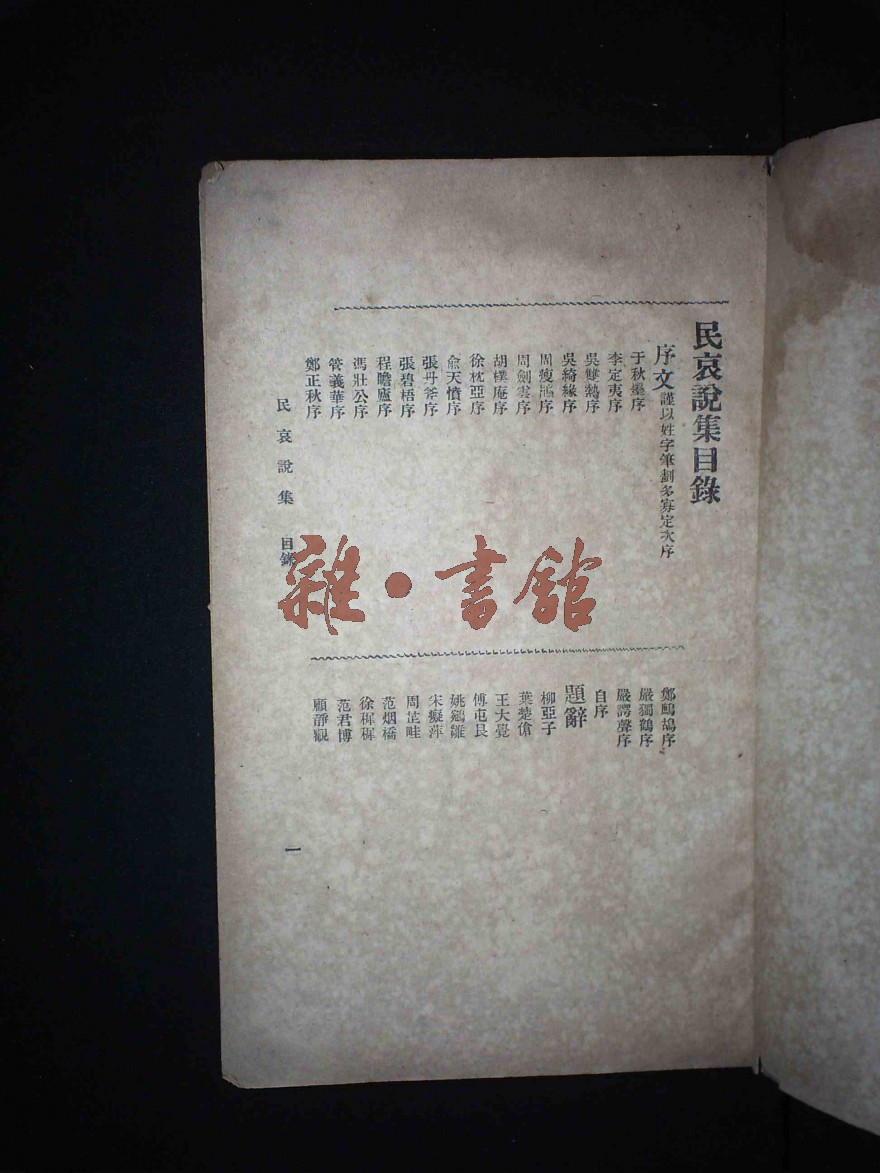 民哀說集目錄
序文 謹以姓字筆劃多寡定次序
于秋墨序
李定夷序
吳雙熱序
吳綺緣序
周瘦鵑序
周劍雲序
胡樸庵序
徐枕亞序
兪天憤序
張丹斧序
張碧梧序
程瞻廬序
馮壯公序
管義華序
鄭正秋序
鄭鷓鴣序
嚴獨鶴序
嚴諤聲序
自序
題辭
柳亞子
葉楚傖
王大覺
傅屯艮
姚鵷雛
宋癡萍
周芷畦
范烟橋
徐穉穉
范君博
顧靜觀
民哀說集 目錄
一
雜·書館